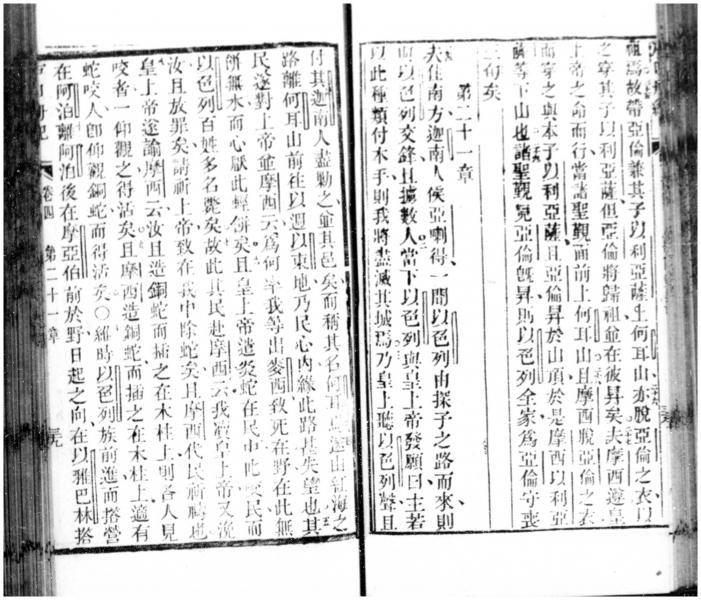 祖焉故帶亞倫兼其子以利亞薩上何耳山亦脫亞倫之衣以
之穿其子以利亞薩但亞倫將歸祖並在彼昇矣夫摩西遵皇
上帝之命而行當諸聖覲面前上何耳山且摩西脫亞倫之衣
而穿之與本子以利亞薩且亞倫昇於山頂於是摩西以利亞
薩等下山也諸聖覲見亞倫旣昇則以色列全家為亞倫守喪
三旬矣
第二十一章
夫住南方迦南人侯亞喇得一聞以色列由探子之路而來則
而以色列交鋒且擄數人當下以色列與皇上帝發願曰主若
以此種類付本手則我將盡滅其城焉乃皇上聽以色列聲且
付其迦南人盡勦之並且邑矣而稱其名何耳馬遂由紅海之
路離何耳山前往以週以東地乃民心內緣此路甚失望也其
民遂對上帝並摩西云為何率我等出麥西致死在野在此無
餅無水而心厭此輕餅矣且皇上帝遣炎蛇在民中此咬民而
以色列百姓多名斃矣故此其民赴摩西云我瀆皇上帝又浼
汝且放罪矣請祈上帝致在我中除蛇矣且摩西代民祈禱也
皇上帝遂諭摩西云汝且造銅蛇而插之在木柱上則各人見
咬者一仰觀之得活矣且摩西造銅蛇而插之在木柱上適有
蛇咬人卽仰觀銅蛇而得活矣〇維時以色列族前進而搭營
在阿泊離阿泊後在摩亞伯前於野日起之向在以雅巴林搭
卷四 第二十一章